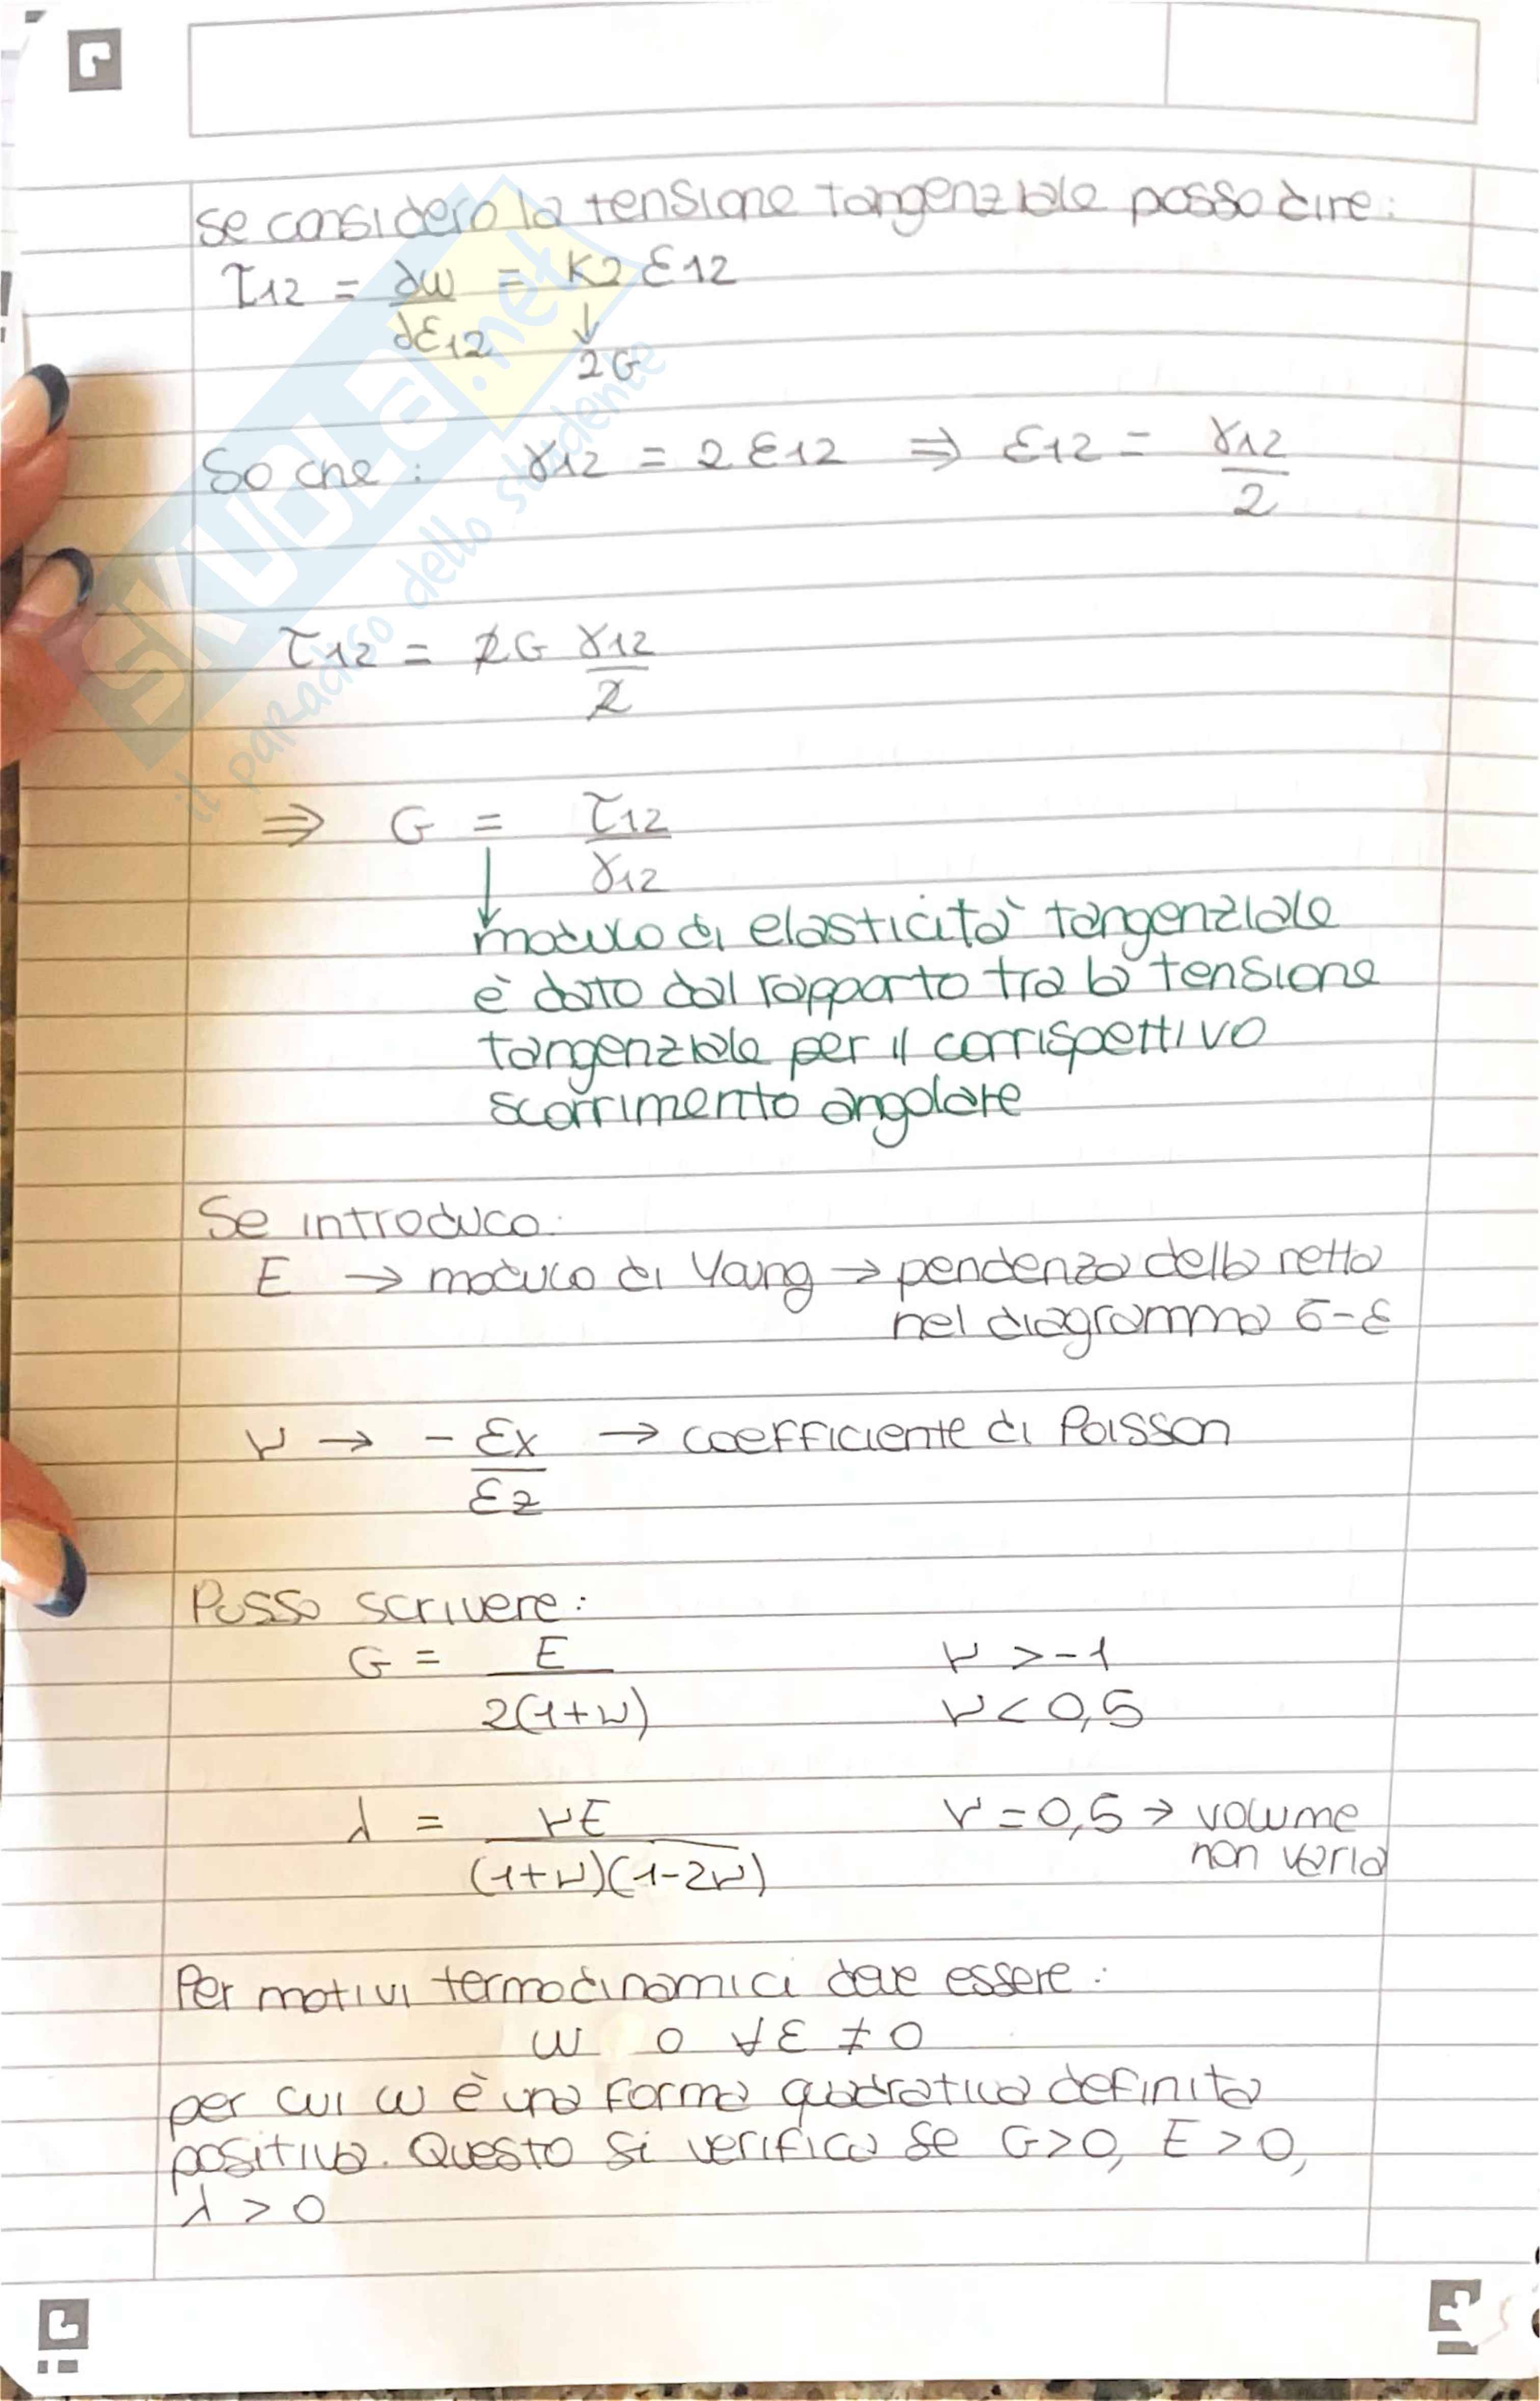 Se considero la tensione tangenziale posso dire:
τ12 = ∂w/∂ε12 = K2 ε12
↓
2G
So che: γ12 = 2 ε12 ⇒ ε12 = γ12/2
τ12 = 2G γ12/2
⇒ G = τ12/γ12
modulo di elasticità tangenziale
è dato dal rapporto tra la tensione
tangenziale per il corrispettivo
scorrimento angolare
Se introduco:
E → modulo di Young → pendenza della retta
nel diagramma σ-ε
ν → - εx/εz → coefficiente di Poisson
Posso scrivere:
G = E/2(1+ν) ν > -1
ν < 0,5
λ = νE/(1+ν)(1-2ν) ν = 0,5 → volume
non varia
Per motivi termodinamici deve essere:
w 0 ∀ε ≠ 0
per cui w è una forma quadratica definita
positiva. Questo si verifica se G>0, E>0,
λ > 0
SKUOLA.net
il paradiso dello studente